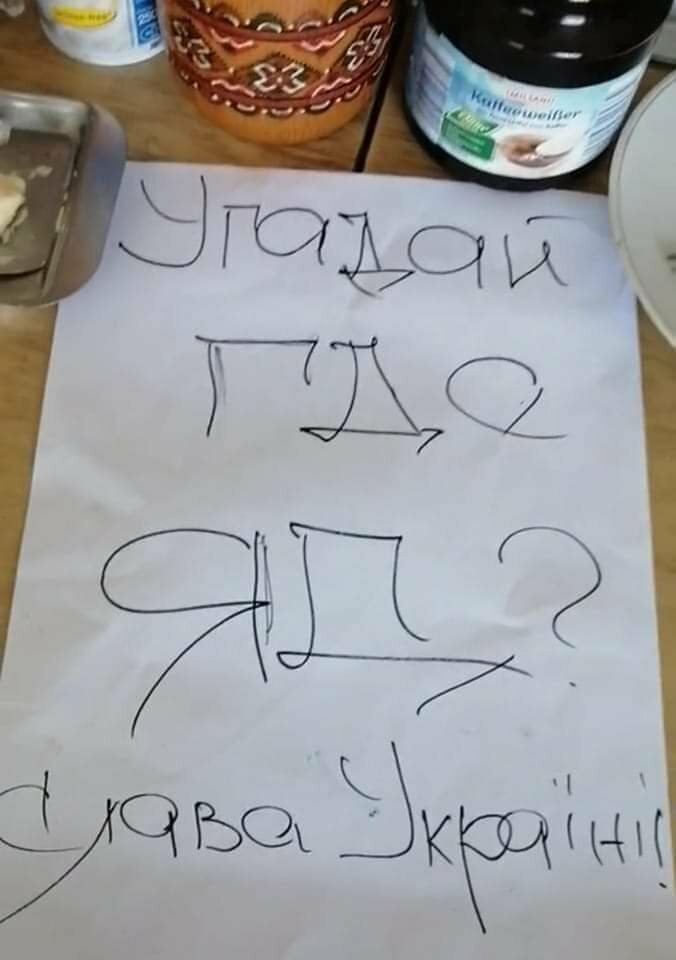 MILSANI
Kaffeeweißer
Угадай
где
яд?
Слава Україні!